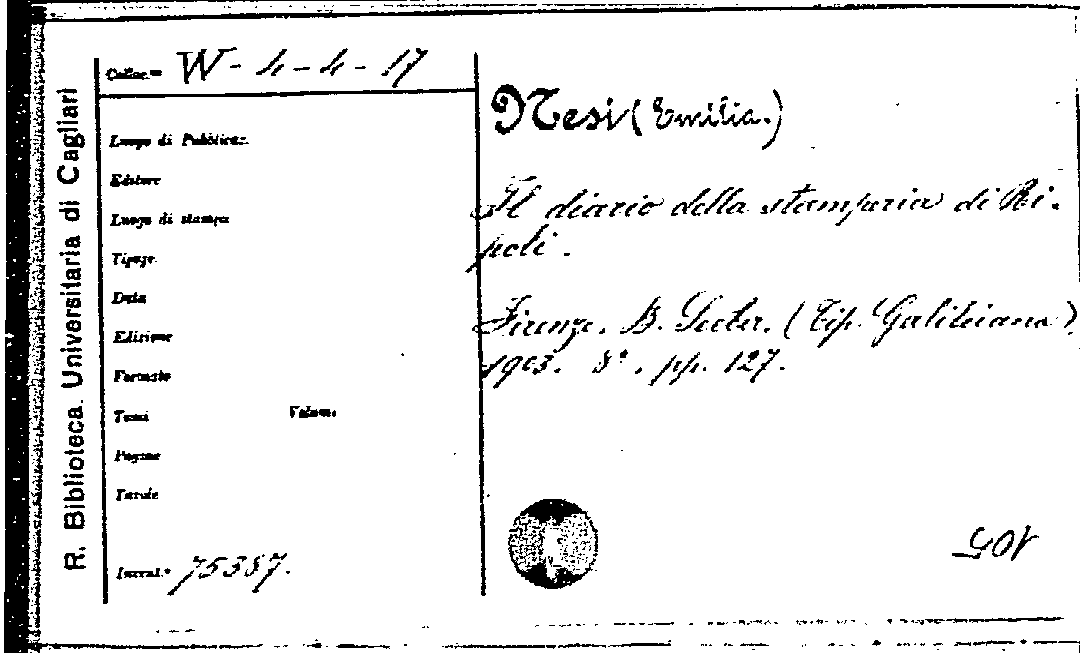 R. Biblioteca Universitaria di Cagliari
Colloc.ne W - 4 - 4 - 17
Luogo di Pubblicaz.
Editore
Luogo di stampa
Tipogr.
Data
Edizione
Formato
Tomi Volumi
Pagine
Tavole
Invent.º 75387.
Nesi (Emilia.)
Il diario della stamperia di Ri-
poli.
Firenze. B. Seeber. (Tip. Galileiana)
1903. 8°. pp. 127.